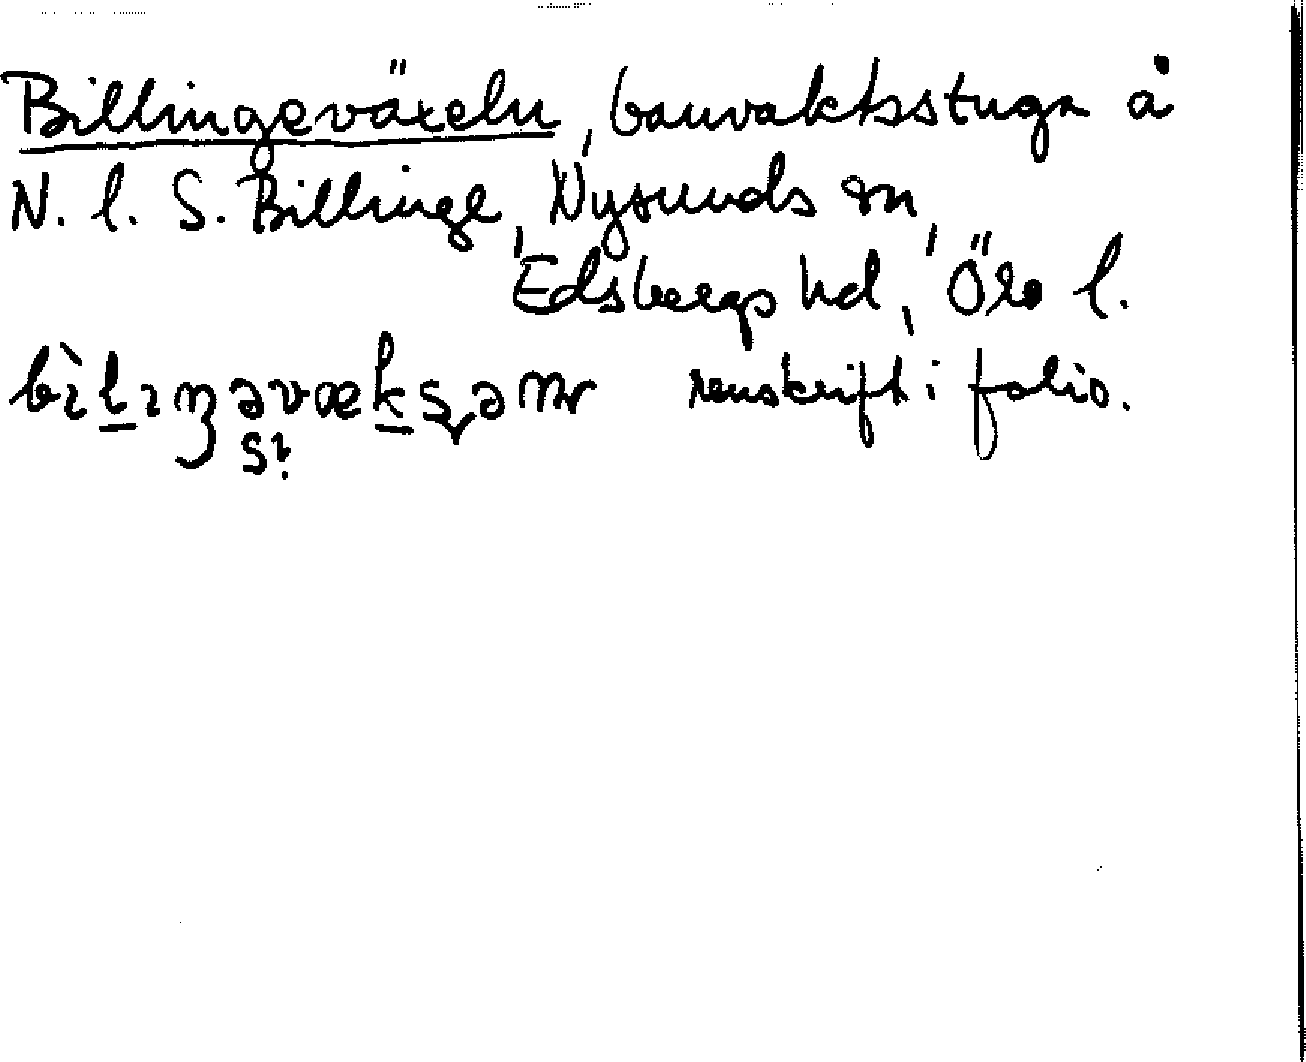 Billingeväxeln, banvaktsstuga å
N. l. S. Billinge, Nysunds sn,
Edsbergs hd, Öre l.
renskrift i folio.